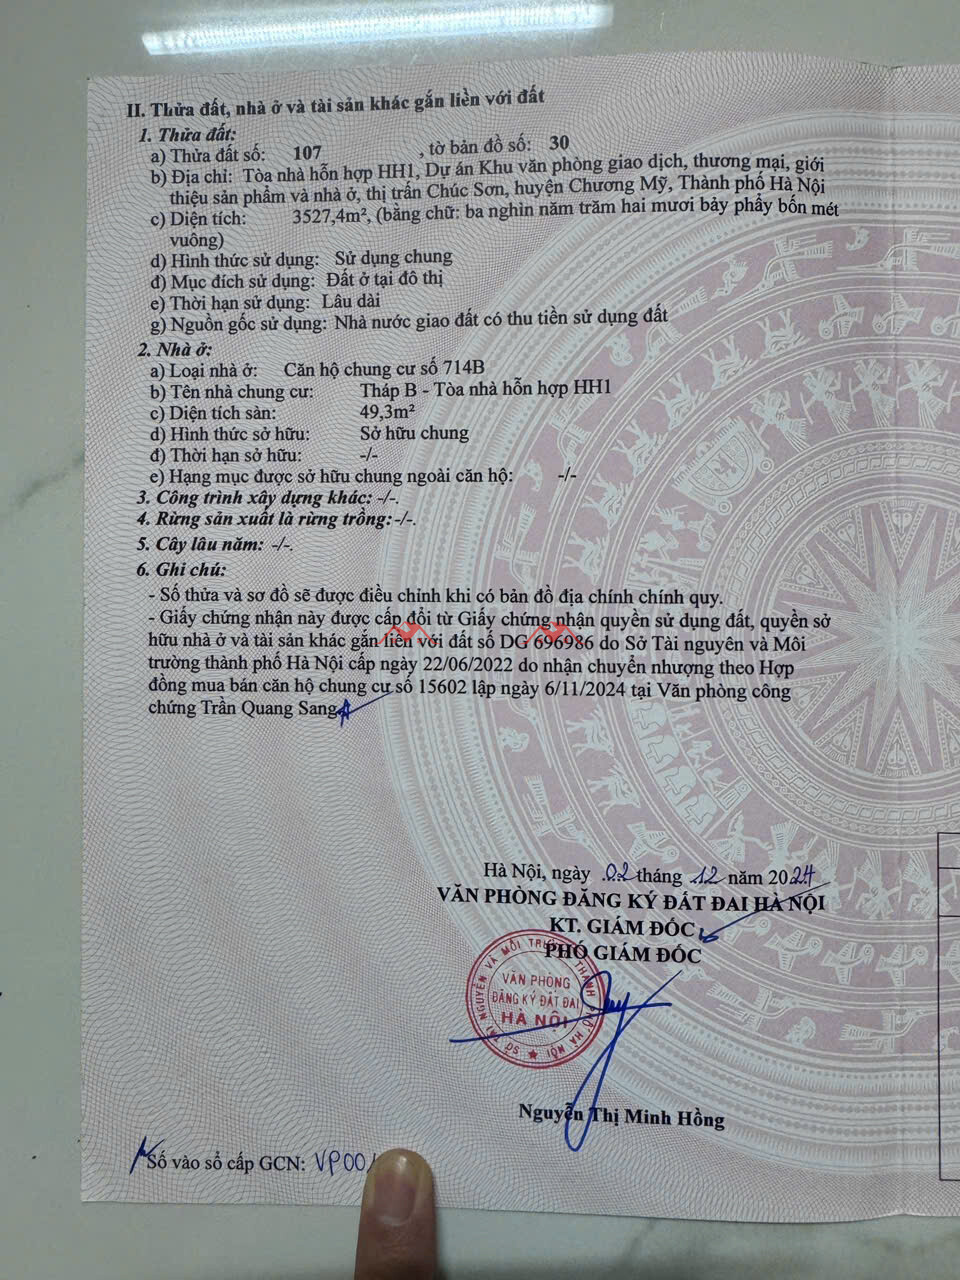 II. Thửa đất, nhà ở và tài sản khác gắn liền với đất
1. Thửa đất:
a) Thửa đất số: 107 , tờ bản đồ số: 30
b) Địa chỉ: Tòa nhà hỗn hợp HH1, Dự án Khu văn phòng giao dịch, thương mại, giới
thiệu sản phẩm và nhà ở, thị trấn Chúc Sơn, huyện Chương Mỹ, Thành phố Hà Nội
c) Diện tích: 3527,4m², (bằng chữ: ba nghìn năm trăm hai mươi bảy phẩy bốn mét
vuông)
d) Hình thức sử dụng: Sử dụng chung
đ) Mục đích sử dụng: Đất ở tại đô thị
e) Thời hạn sử dụng: Lâu dài
g) Nguồn gốc sử dụng: Nhà nước giao đất có thu tiền sử dụng đất
2. Nhà ở:
a) Loại nhà ở: Căn hộ chung cư số 714B
b) Tên nhà chung cư: Tháp B - Tòa nhà hỗn hợp HH1
c) Diện tích sàn: 49,3m²
d) Hình thức sở hữu: Sở hữu chung
đ) Thời hạn sở hữu: -/-
e) Hạng mục được sở hữu chung ngoài căn hộ: -/-
3. Công trình xây dựng khác: -/-.
4. Rừng sản xuất là rừng trồng:-/-.
5. Cây lâu năm: -/-.
6. Ghi chú:
- Số thửa và sơ đồ sẽ được điều chỉnh khi có bản đồ địa chính chính quy.
- Giấy chứng nhận này được cấp đổi từ Giấy chứng nhận quyền sử dụng đất, quyền sở
hữu nhà ở và tài sản khác gắn liền với đất số DG 696986 do Sở Tài nguyên và Môi
trường thành phố Hà Nội cấp ngày 22/06/2022 do nhận chuyển nhượng theo Hợp
đồng mua bán căn hộ chung cư số 15602 lập ngày 6/11/2024 tại Văn phòng công
chứng Trần Quang Sang
Hà Nội, ngày 02 tháng 12 năm 2024
VĂN PHÒNG ĐĂNG KÝ ĐẤT ĐAI HÀ NỘI
KT. GIÁM ĐỐC
PHÓ GIÁM ĐỐC
SỞ TÀI NGUYÊN VÀ MÔI TRƯỜNG THÀNH PHỐ HÀ NỘI
VĂN PHÒNG
ĐĂNG KÝ ĐẤT ĐAI
HÀ NỘI
Nguyễn Thị Minh Hồng
Số vào sổ cấp GCN: VP00